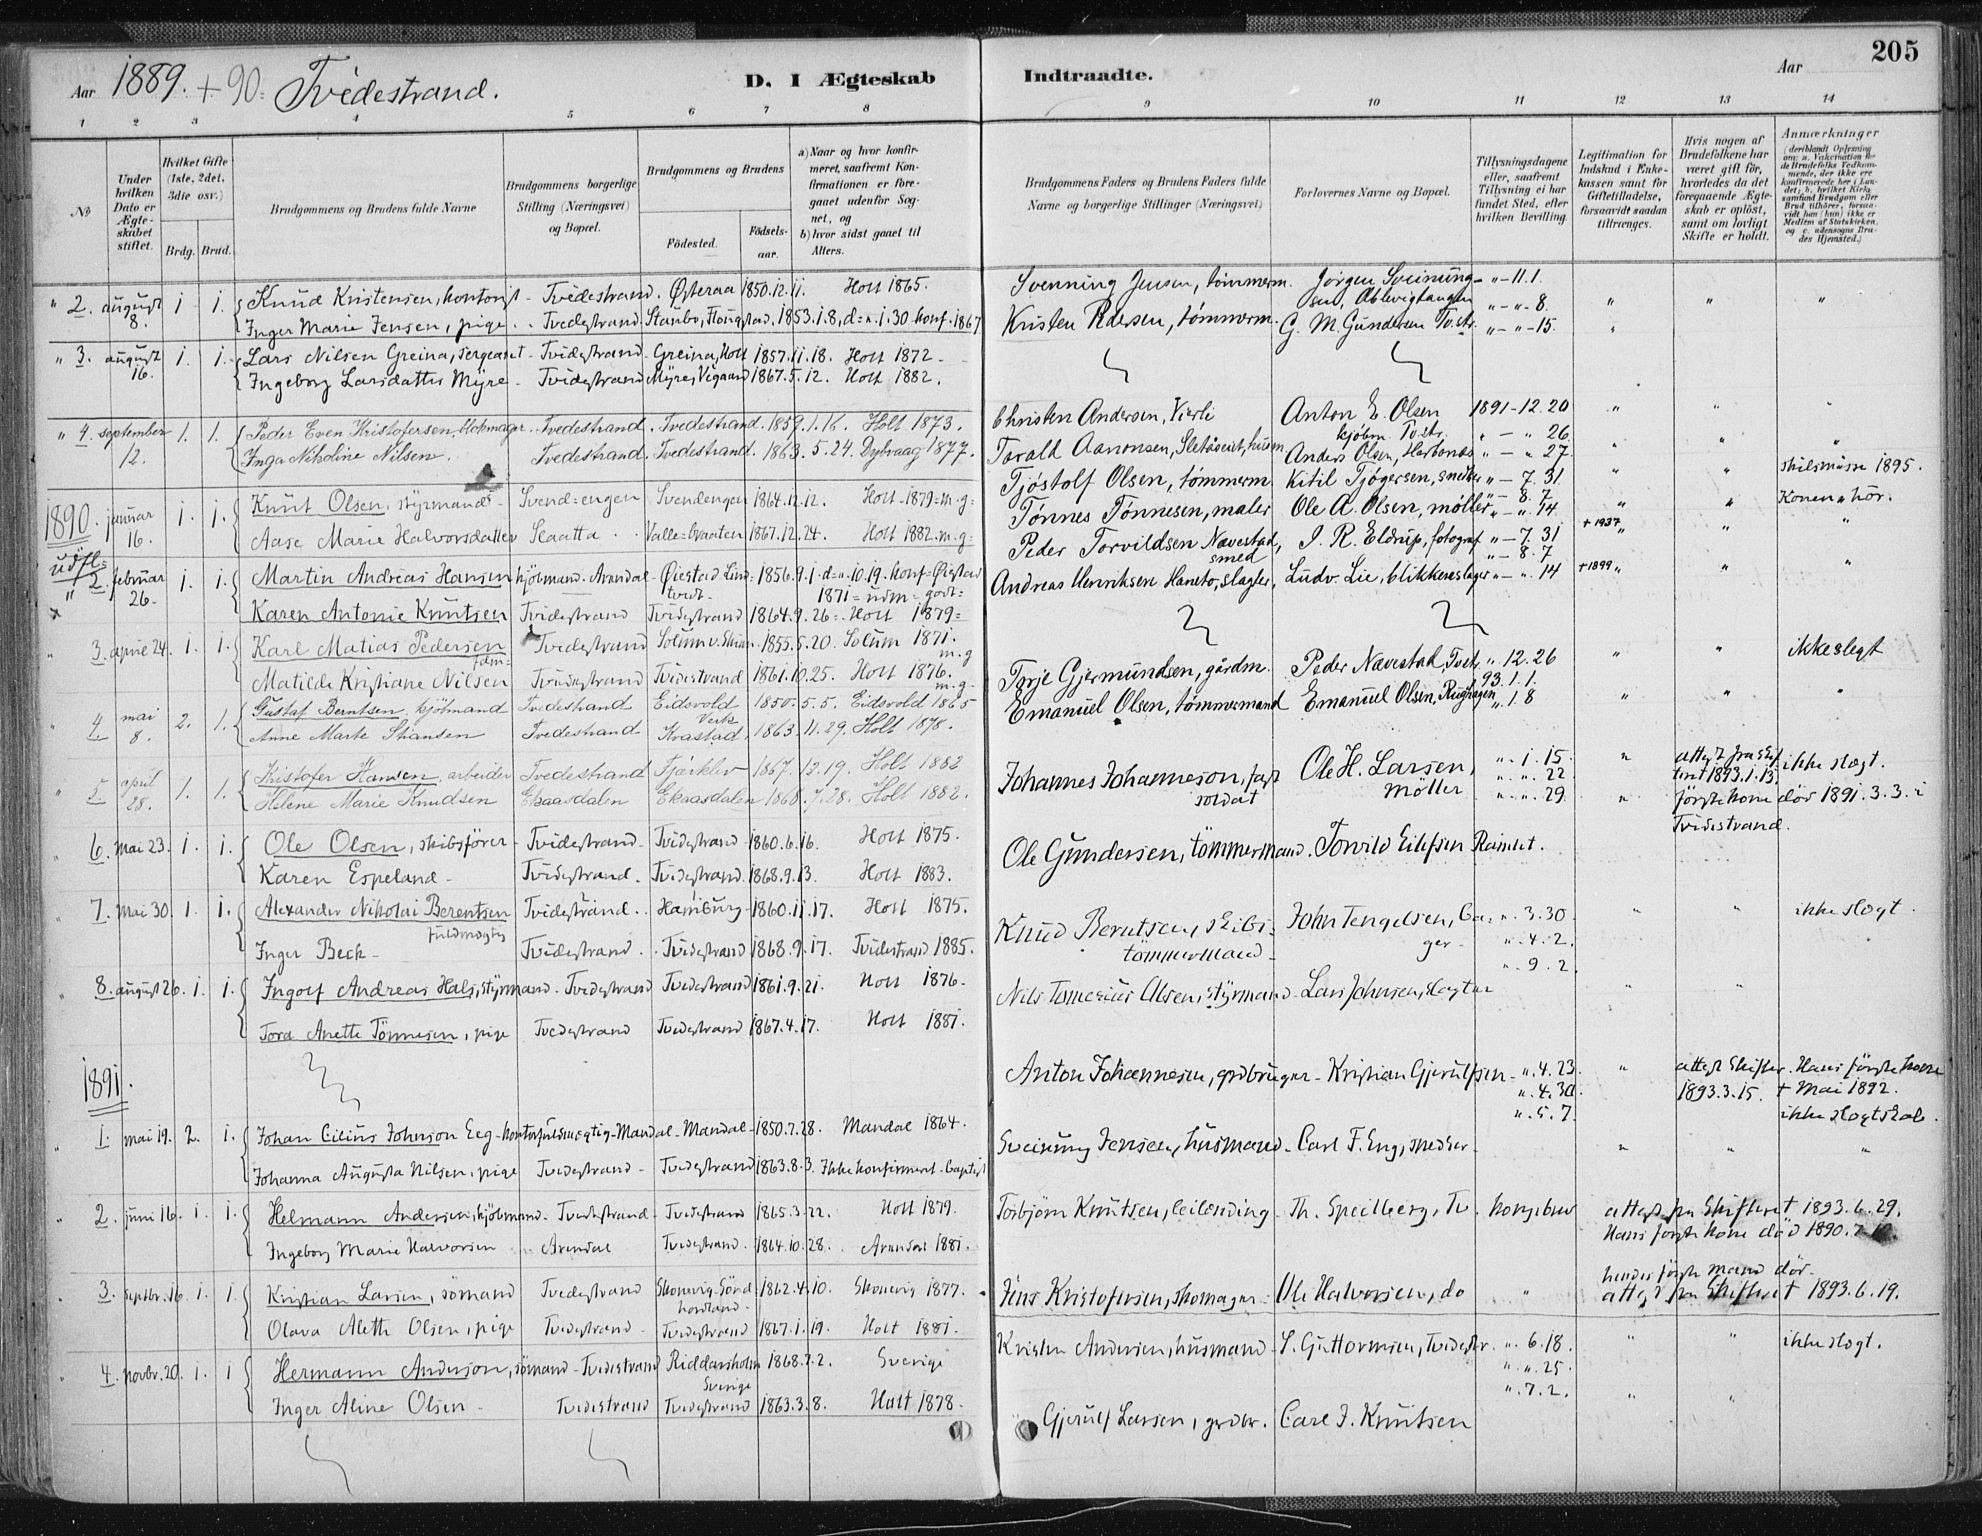 Aar 1889. + 90. Tvedestrand. D. I Ægteskab
1 2 3 4 5 6 7 8
No
Under hvilken Dato er Ægteskabet stiftet.
Hvilket Gifte (1ste, 2det, 3die osv.)
Brdg. Brud.
Brudgommens og Brudens fulde Navne
Brudgommens borgerlige Stilling (Næringsvei) og Bopæl.
Brudgommens og Brudens
Födested.
Födselsaar.
a) Naar og hvor konfirmeret, saafremt Konfirmationen er foregaaet udenfor Sognet, og
b) hvor sidst gaaet til Alters.
" 2. august 8. 1 1. Knud Kristensen, kontorist - Tvedestrand. Österaa 1850.12.11. Holt 1865.
Inger Marie Jensen, pige. Tvedestrand. Staubö, Flougstad. 1853.1.8, d=".1.30 konf. 1867
" 3. august 16. 1. 1. Lars Nilsen Greina, sergeant - Tvedestrand - Greina, Holt 1857.11.18. Holt 1872 -
Ingeborg Larsdatter Myre - Tvedestrand Myre, Vigaard 1867.5.12. Holt 1882.
" 4. september 12. 1. 1. Peder Even Kristofersen, blokmager. Tvedestrand. Tvedestrand. 1859.1.16. Holt 1873.
Inga Nikoline Nilsen. Tvedestrand. Tvedestrand. 1863.5.24. Dybvaag 1877.
1890. januar 16. 1. 1. Knut Olsen, styrmand - Svend=engen Svendengen 1864.12.12. Holt - 1879=m.g=
Aase Marie Halvorsdatter Slaatta . Valle=Braaten 1867.12.24. Holt 1882.m.g=
udfl=
" 2. februar 26. 1. 1. Martin Andreas Hansen kjöbmand. Arendal - Öiestad 1856.9.1-d="10.19. Konf=Öiestad
1871=udm=godt=
Karen Antonie Knutsen Tvedestrand Tvedestrand 1864.9.26=. Holt 1879=
" 3. april 24. 1. 1. Karl Matias Pedersen Tvedestrand Solum v. Skien - 1855.5.20. Solum 1871.
m.g
Matilde Kristiane Nilsen Tvedestrand Tvedestrand 1861.10.25. Holt 1876.
m.g.
" 4. mai 8. 2. 1. Gustaf Berntsen, kjöbmand Tvedestrand Eidsvold Verk 1850.5.5. Eidsvold 1865
Anne Marte Stiansen Tvedestrand Kvastad 1863.11.29. Holt 1878.
" 5 april 28. 1. 1. Kristofer Hansen, arbeider Tvedestrand Fjærklev 1867.12.19. Holt 1882
Helene Marie Knudsen Ekaasdalen Ekaasdalen 1868.7.28. Holt 1882.
" 6. mai 23. 1. 1. Ole Olsen, skibsförer - Tvedestrand - Tvedestrand 1860.6.16. Holt 1875.
Karen Espeland - Tvedestrand. Tvedestrand. 1868.9.13. Holt 1883.
" 7. mai 30. 1. 1. Alexander Nikolai Berentsen Tvedestrand. Hamburg - 1860.11.17. Holt 1875.
fuldmægtig
Inger Beck - Tvedestrand. Tvedestrand 1868.9.17. Tvedestrand 1885.
" 8. august 26. 1. 1. Ingolf Andreas Hals, styrmand - Tvedestrand Tvedestrand 1861.9.21. Holt 1876.
Tora Anette Tönnesen, pige Tvedestrand Tvedestrand 1867.4.17. Holt 1881.
1891.
" 1. mai 19. 2. 1. Johan Cilius Johnson Eeg - kontorfuldmægtig - Mandal - Mandal - 1850.7.28. Mandal 1864.
Johanna Augusta Nilsen, pige Tvedestrand - Tvedestrand 1863.8.3. Ikke konfirmeret - baptist
" 2. juni 16. 1. 1. Helmann Andersen, kjöbmand. Tvedestrand - Tvedestrand 1865.3.22. Holt 1879.
Ingeborg Marie Halvorsen Arendal Tvedestrand. 1864.10.28. Arendal 1881.
" 3. septbr. 16. 1. 1. Kristian Larsen, sömand Tvedestrand Skonevig Söndhordland - 1862.4.10. Skonevig 1877.
Olava Alette Olsen, pige Tvedestrand - Tvedestrand 1867.1.19. Holt 1881.
" 4. novbr. 20. 1. 1 Hermann Anderson, sömand - Tvedestrand Riddarsholm Sverige 1868.7.2. Sverige
Inger Aline Olsen - Tvedestrand Tvedestrand 1863.3.8. Holt 1878.
Indtraadte. Aar 205
9 10 11 12 13 14
Brudgommens Faders og Brudens Faders fulde Navne og borgerlige Stillinger (Næringsvei)
Forlovernes Navne og Bopæl.
Tillysningsdagene eller, saafremt Tillysning ei har fundet Sted, efter hvilken Bevilling.
Legitimation for Indskud i Enkekassen samt for Giftetilladelse, forsaavidt saadan tiltrænges.
Hvis nogen af Brudefolkene har været gift før, hvorledes da det foregaaende Ægteskab er opløst, samt om lovligt Skifte er holdt.
Anmærkninger
(deriblandt Oplysning om: a. Vakcination for de Brudefolks Vedkommende, der ikke ere konfirmerede her i Landet; b. hvilket Kirkesamfund Brudgom eller Brud tilhører, forsaavidt han (hun) ikke er Medlem af Statskirken, og c. udensogns Brudes Hjemsted.)
Svenning Jensen, tömmerm. Jörgen Sveinungsen, " - 11.1.
" - " - 8. " " "
Kristen Pedersen, tömmerm. G. M. Gundersen Tv.str. " - " - 15. "
Christen Andersen, Vierli Anton E. Olsen 1891 - 12.20 " " "
kjöbm. Tv.str. " - " 26.
Torald Aanonsen, husm. Anders Olsen, " - " 27. " "
Tjöstolf Olsen, tömmerm Kitil Tjögersen, smed " - 7.31 " " skilsmisse 1895.
" - 8.7
Tönnes Tönnesen, maler Ole A. Olsen, möller " - " 14. " " Konen " hör.
Peder Torvildsen Nævestad, smed J. R. Eldrup, fotograf " - 7.31 + 1937 " " "
" - 8.7
Andreas Henriksen Haneto, slagter, Ludv. Lie, blikkenslager " - " 14 + 1899 " " "
Terje Gjermundsen, gårdm. Peder Nævestad Tvstr. " 12.26 " " ikke slegt
93.1.1.
Emanuel Olsen, tömmermand Emanuel Olsen, " 1.8 " " "
Johannes Johanneson, soldat Ole H. Larsen, Möller " 1.15. " attest fra skiftret 1893.1.13. ikke slægt.
" " 22
" " 29. " förste kone död 1891.3.3. i
Tvedestrand.
Ole Gundersen, tömmermand. Torvild Eilefsen Ramlet.
Knud Berntsen, skibstömmermand - John Tengelsen, bager - " 3.30 " " ikke slægt.
" 4.2.
" 9.2.
Nils Tomesius Olsen, styrmand - Lars Johnsen, slagter " "
Anton Johannesen, grdbruger - Kristian Gjerulfsen - " 4.23 " attest Skifter. Hans förste kone
" 4.30 1893.3.15. + Mai 1892.
" 5.7. ikke slægtskab.
Sveinung Jensen, husmand - Carl F. Eng, smed " " "
Torbjörn Knutsen, leilending - Th. Speilberg, Tv. kongebrev attest fra Skifteret + 1893.6.29.
Hans förste kone död 1890.
hendes förste mand dör.
Jens Kristofersen, skomager - Ole Halvorsen, do " attest fra Skifteret + 1893.6.19.
Kristen Andersen, husmand - S. Guttormsen, Tvedestr. " 6.18. " " ikke slægt.
" " 25.
" 7.2. " "
Gjerulf Larsen, grdbr. Carl J. Knutsen